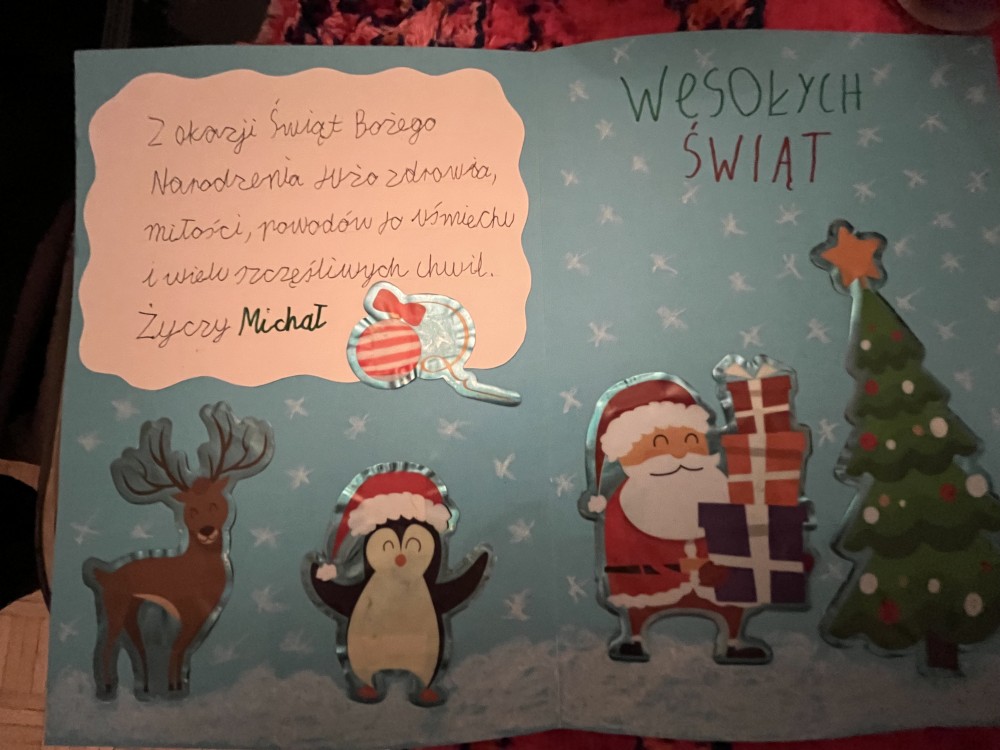 Z okazji Świąt Bożego
Narodzenia dużo zdrowia,
miłości, powodów do uśmiechu
i wielu szczęśliwych chwil.
Życzy Michał
WESOŁYCH
ŚWIĄT